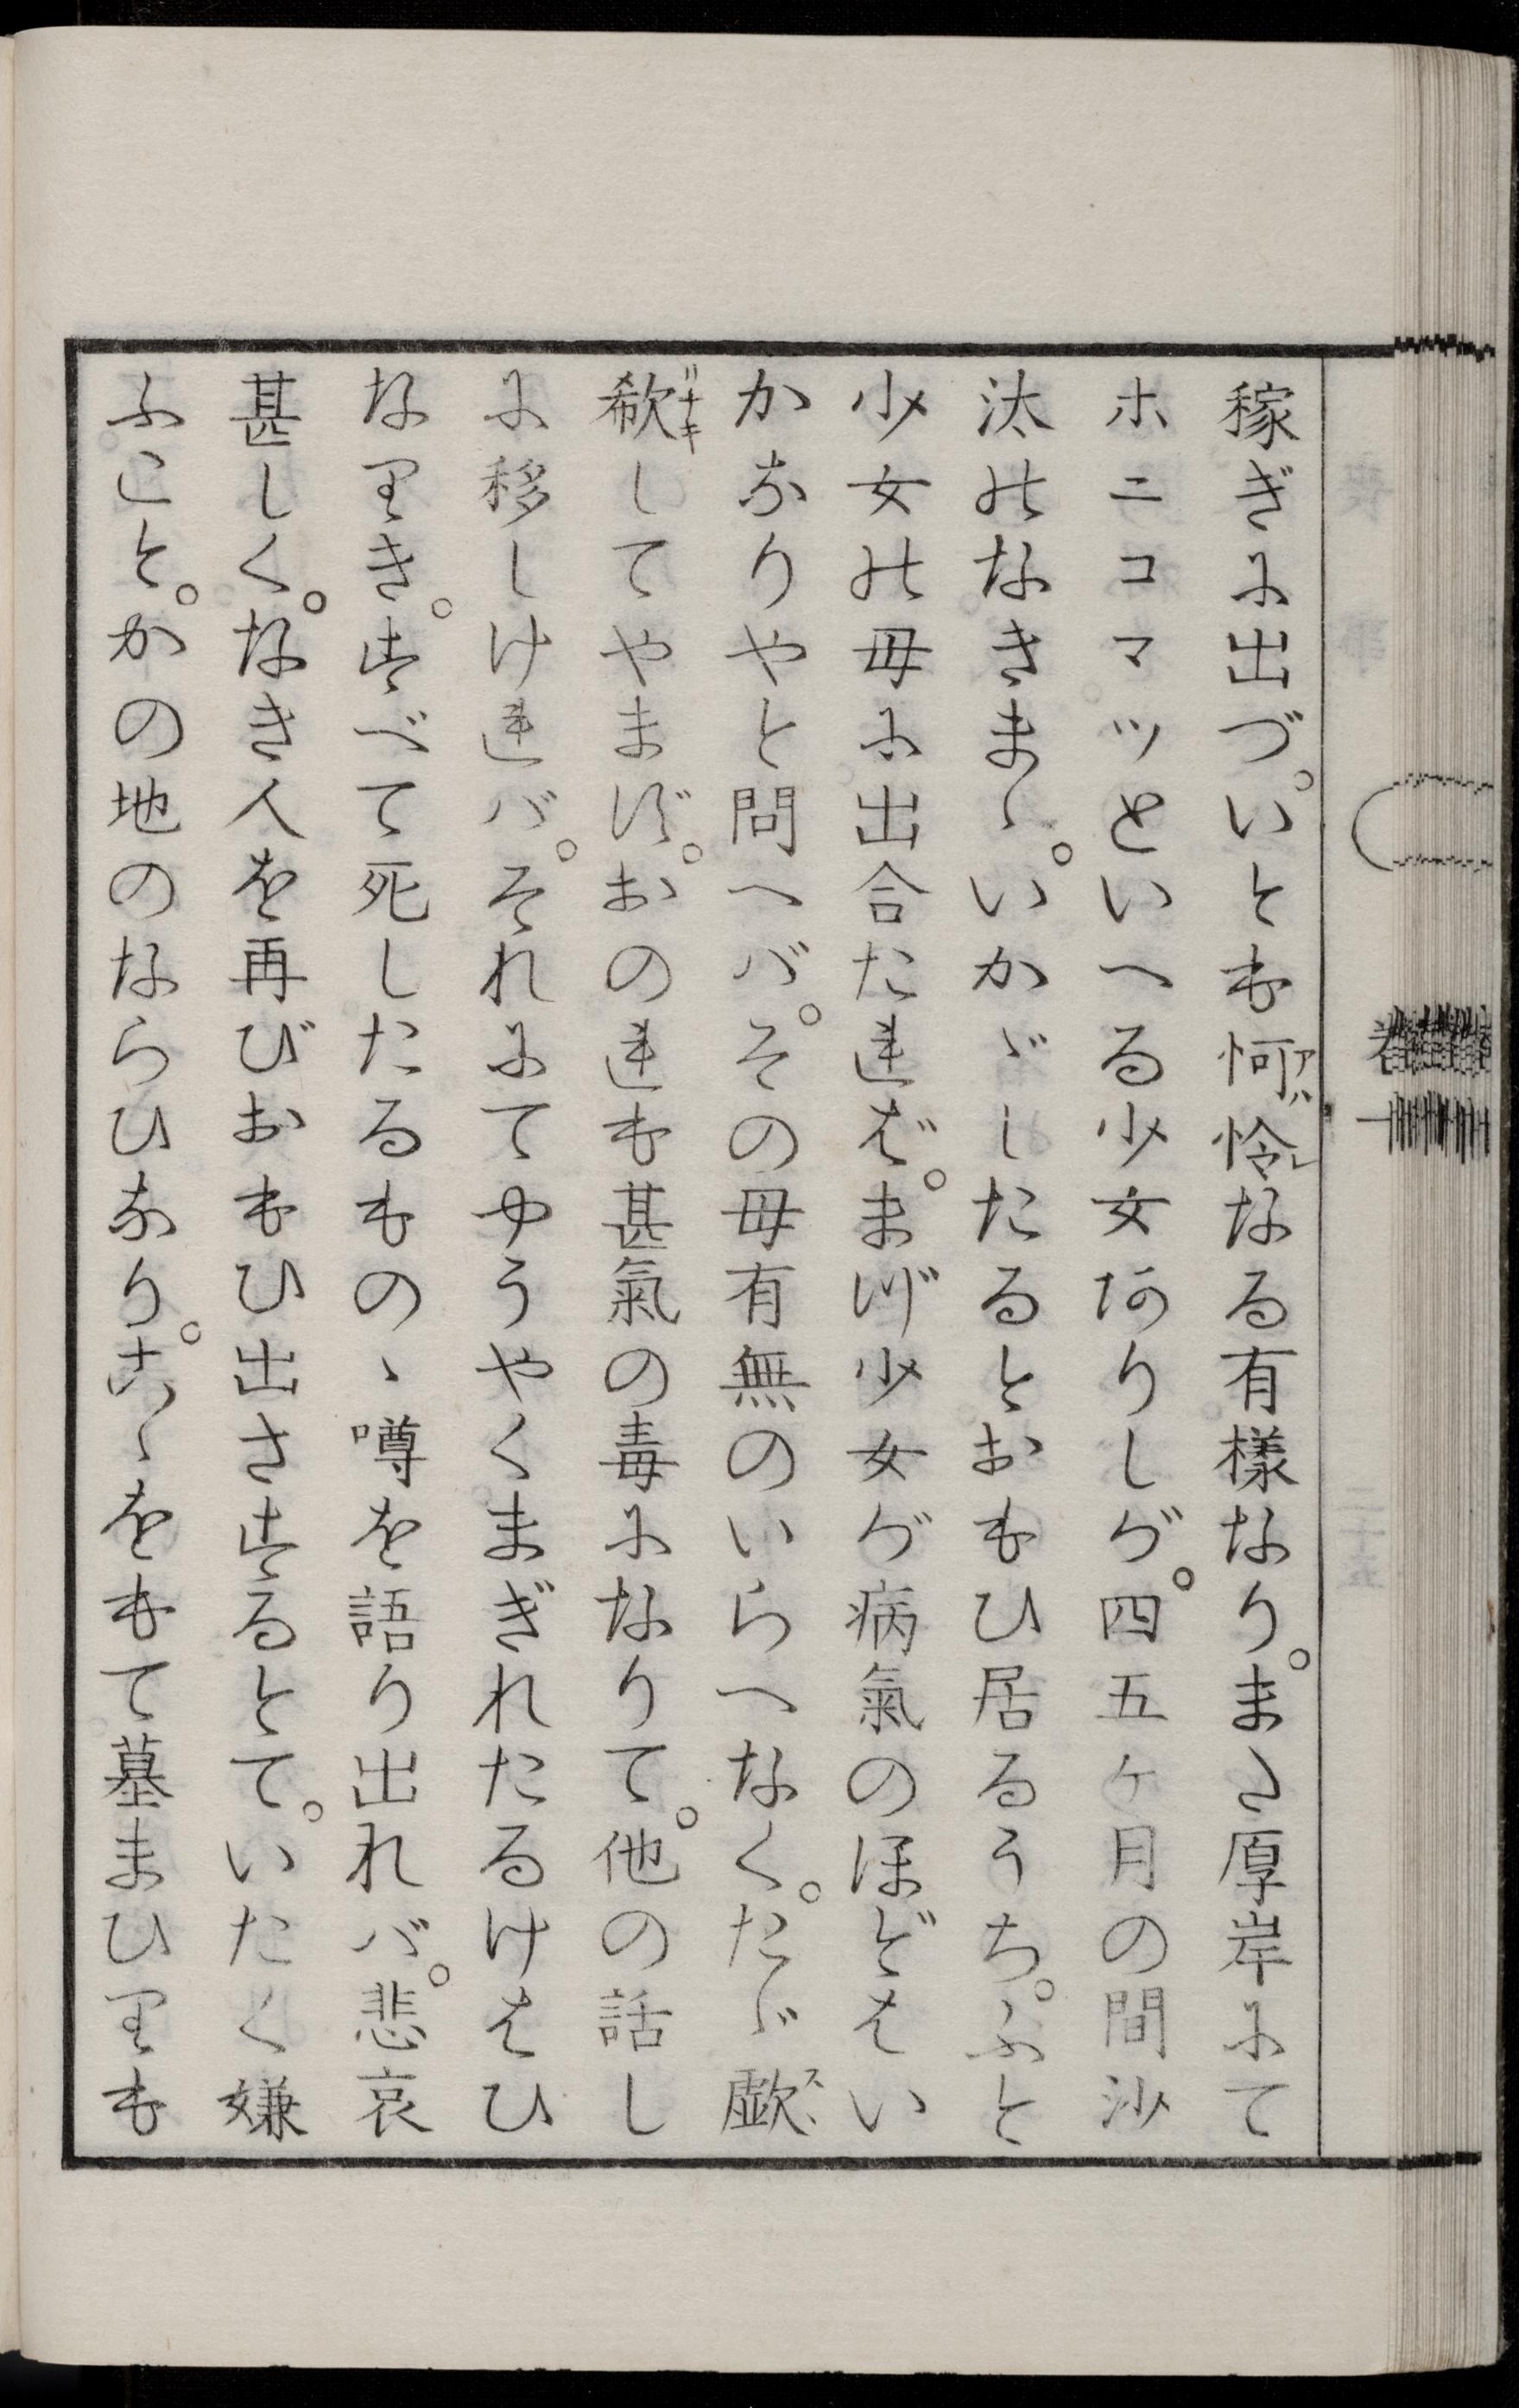 稼ぎに出づ。いとも恫怜なる有樣なり。また厚岸にて
ホニコマツといへる少女ありしが。四五ヶ月の間沙
汰のなきまゝ。いかゞしたるとおもひ居るうち。ふと
少女の母に出合たれば。まづ少女が病氣のほどはい
かなりやと問へバ。その母有無のいらへなく。たゞ歔
欷してやまず。おのれも甚氣の毒になりて。他の話し
に移しけれバ。それにてやうやくまぎれたるけはひ
なりき。すべて死したるものゝ噂を語り出れバ。悲哀
甚しく。なき人を再びおもひ出さするとて。いたく嫌
ふこと。かの地のならひなり。こゝをもて墓まひりも